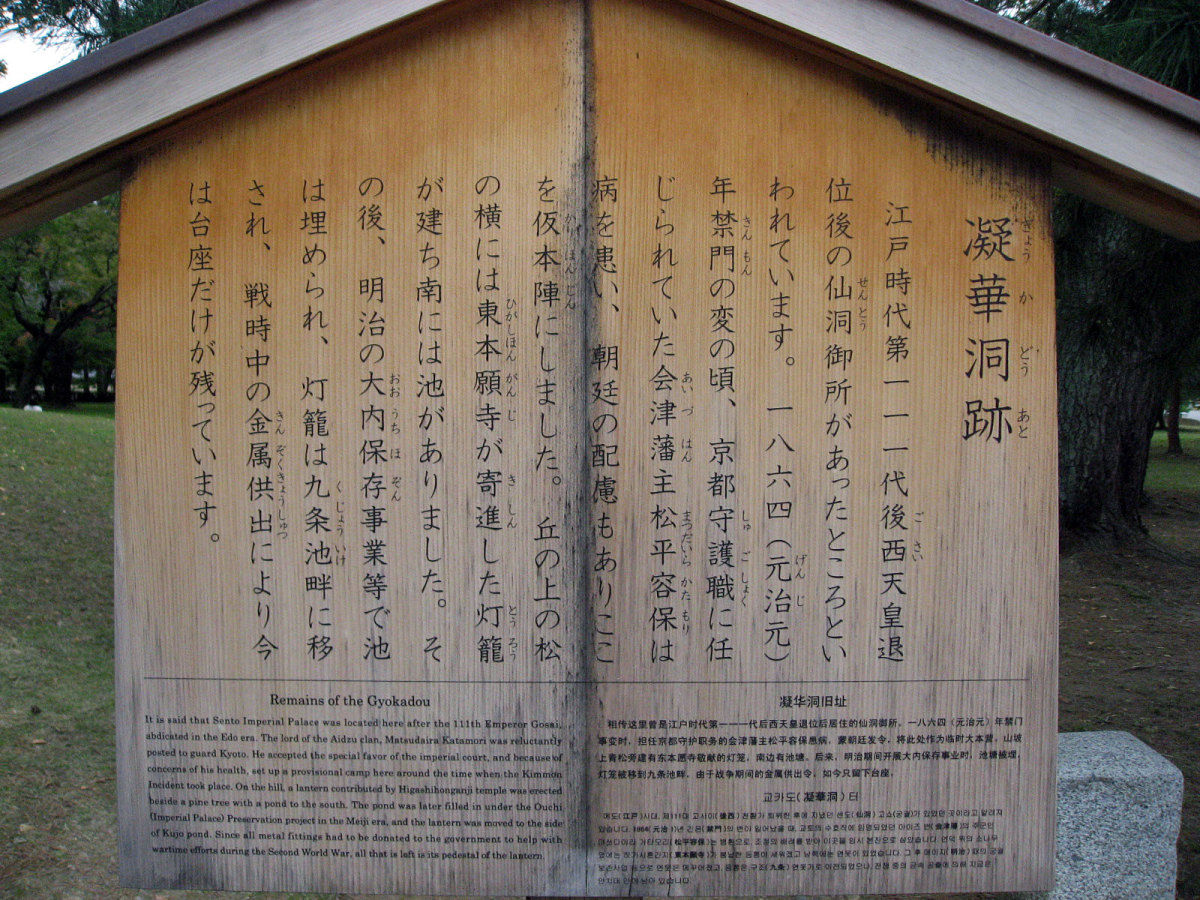 凝華洞跡
江戸時代第一一一代後西天皇退
位後の仙洞御所があったところとい
われています。一八六四(元治元)
年禁門の変の頃、京都守護職に任
じられていた会津藩主松平容保は
病を患い、朝廷の配慮もありここ
を仮本陣にしました。丘の上の松
の横には東本願寺が寄進した灯籠
が建ち南には池がありました。そ
の後、明治の大内保存事業等で池
は埋められ、灯籠は九条池畔に移
され、戦時中の金属供出により今
は台座だけが残っています。
Remains of the Gyokadou
It is said that Sento Imperial Palace was located here after the 111th Emperor Gosai,
abdicated in the Edo era. The lord of the Aidzu clan, Matsudaira Katamori was reluctantly
posted to guard Kyoto. He accepted the special favor of the imperial court, and because of
concerns of his health, set up a provisional camp here around the time when the Kimmon
Incident took place. On the hill, a lantern contributed by Higashihonganji temple was erected
beside a pine tree with a pond to the south. The pond was later filled in under the Ouchi
(Imperial Palace) Preservation project in the Meiji era, and the lantern was moved to the side
of Kujo pond. Since all metal fittings had to be donated to the government to help with
wartime efforts during the Second World War, all that is left is its pedestal of the lantern.
凝华洞旧址
相传这里曾是江户时代第一一一代后西天皇退位后居住的仙洞御所。一八六四(元治元)年禁门
事变时,担任京都守护职务的会津藩主松平容保患病,蒙朝廷发令,将此处作为临时大本营。山坡
上青松旁建有东本愿寺敬献的灯笼,南边有池塘。后来,明治期间开展大内保存事业时,池塘被埋,
灯笼被移到九条池畔。由于战争期间的金属供出令,如今只留下台座。
교카도(凝華洞) 터
에도(江戸)시대, 제111대 고사이(後西) 천황가 퇴위한 후에 지냈던 센토(仙洞) 고쇼(궁궐)가 있었던 곳이라고 알려져
있습니다. 1864(元治 1)년 긴몬(禁門)의 변이 일어났을 때, 교토의 수호직에 임명되었던 아이즈 번(会津藩)의 주군인